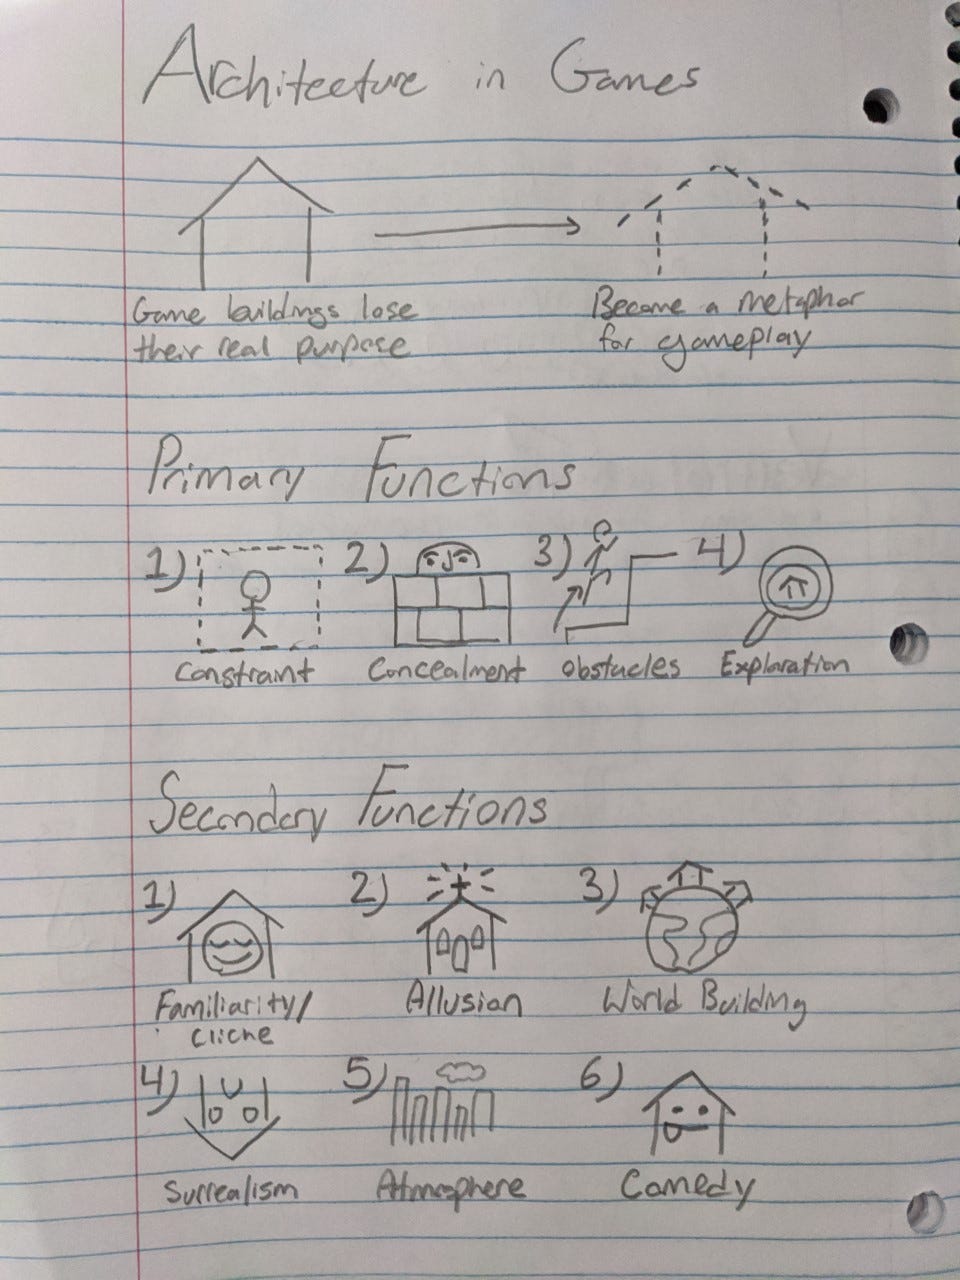 Architecture in Games
Game buildings lose
their real purpose
Become a metaphor
for gameplay
Primary Functions
1) 2) 3) 4)
Constraint Concealment Obstacles Exploration
Secondary Functions
1) 2) 3)
Familiarity/
Cliche
Allusion
World Building
4) 5) 6)
Surrealism Atmosphere Comedy